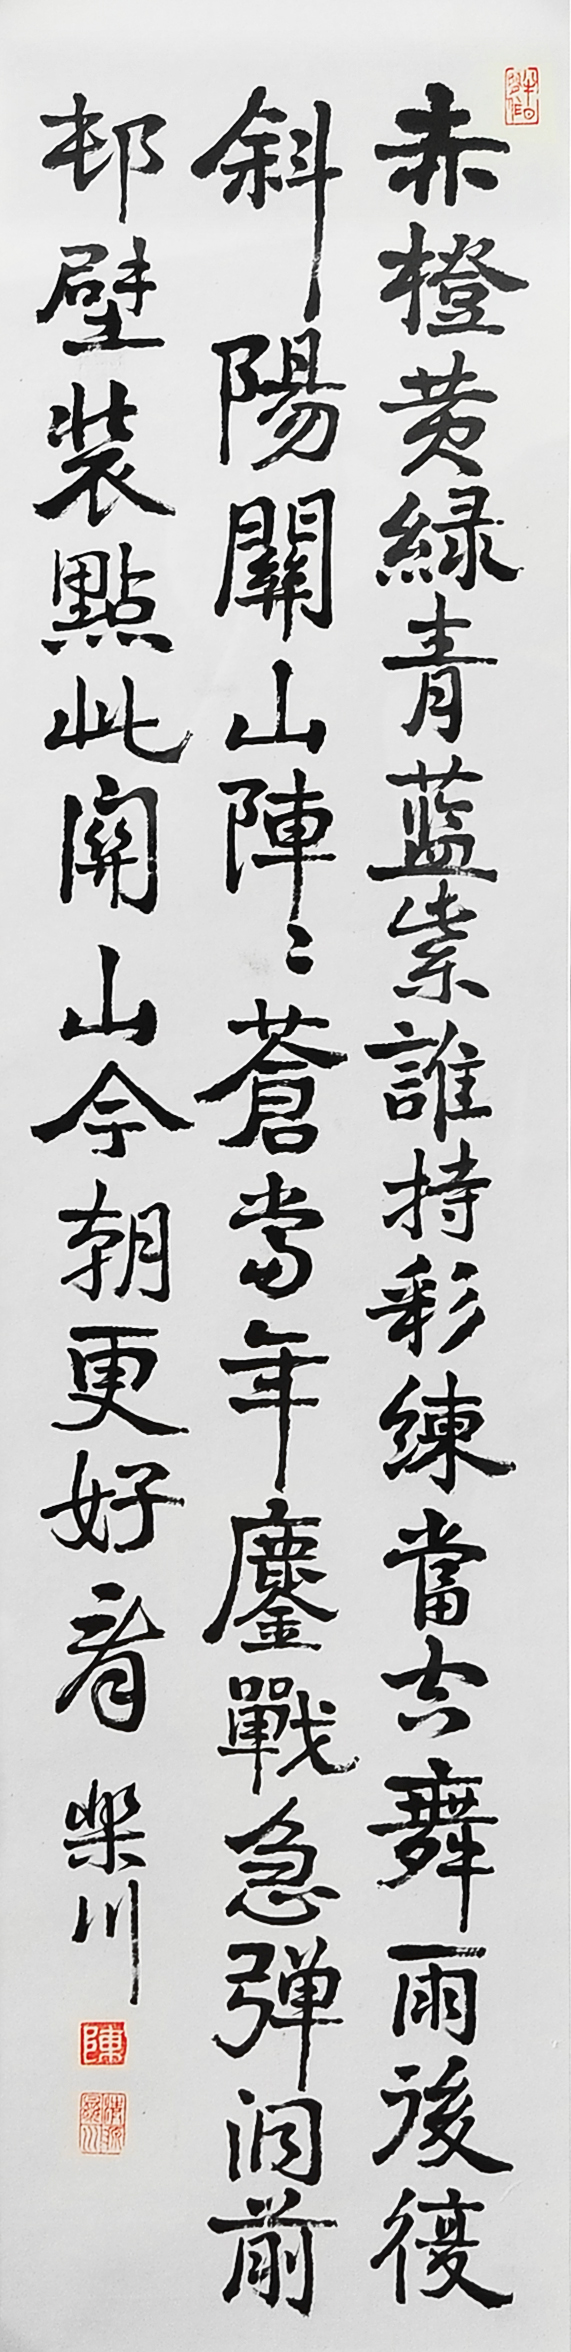 赤橙黄緑青蓝紫誰持彩練當空舞雨後復
斜陽關山陣〻蒼當年鏖戰急弹洞前
邨壁装點此關山今朝更好看
川
陳